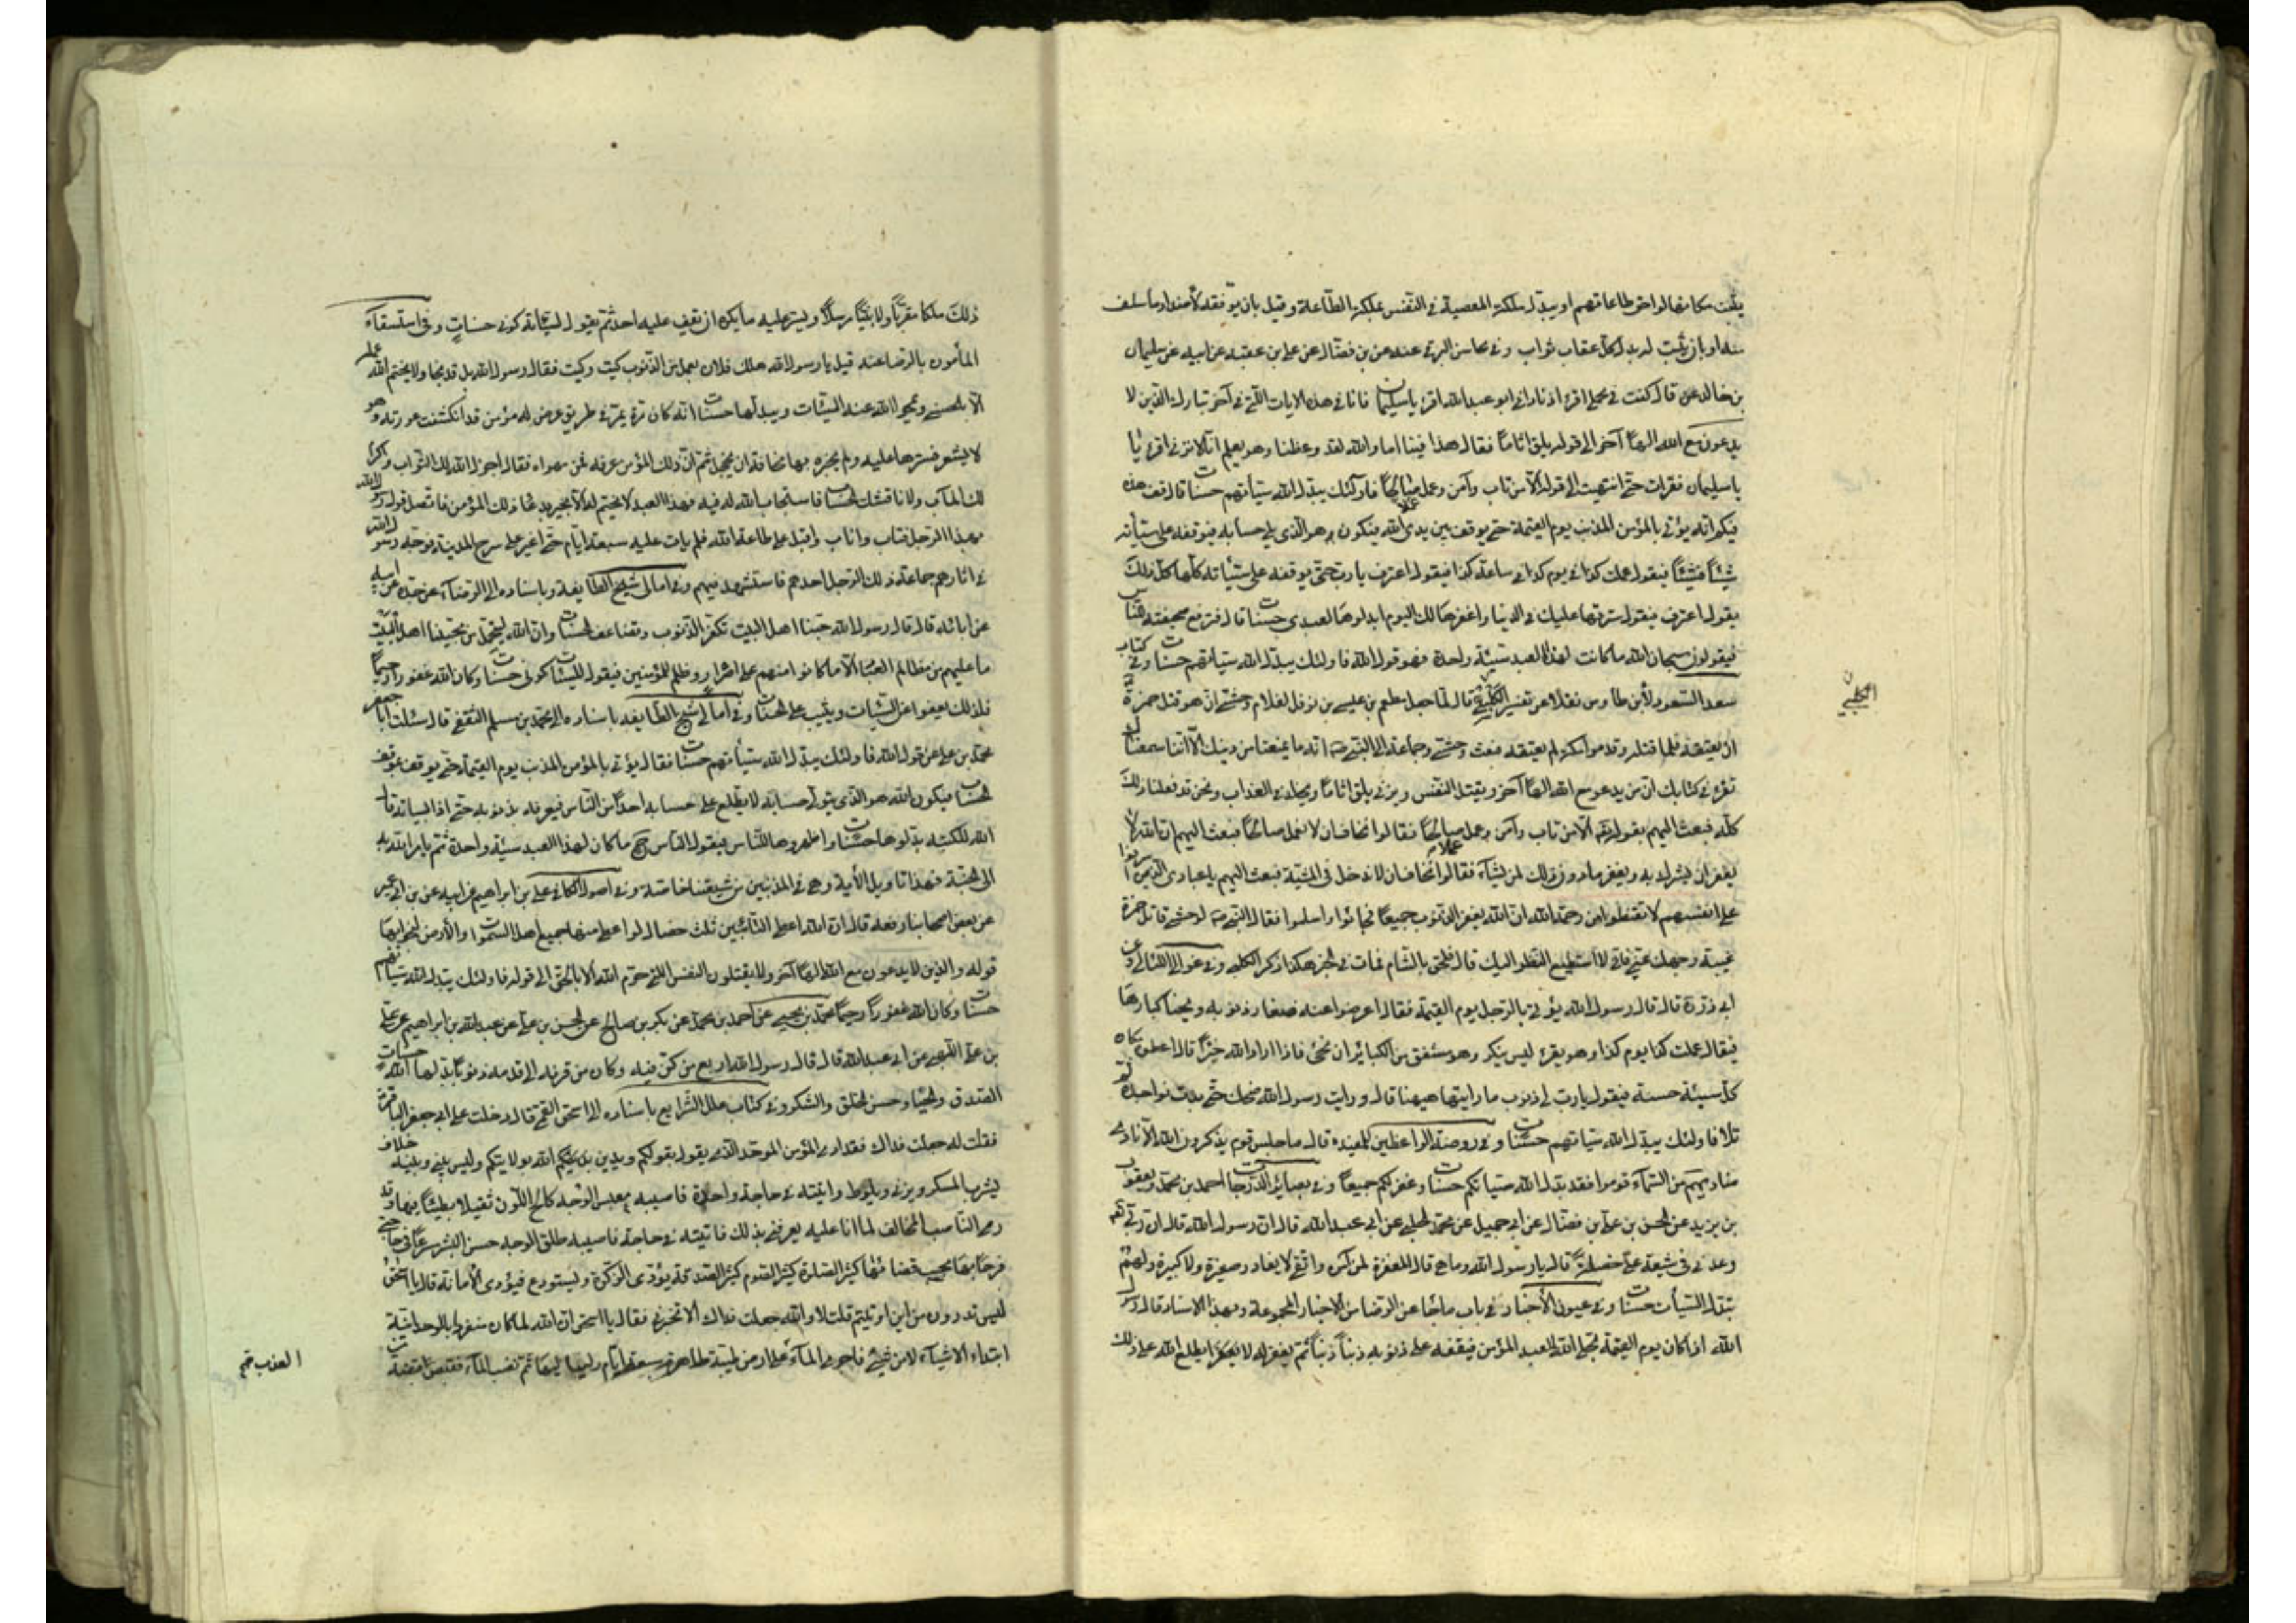 يثبت مكانها لواحق طاعاتهم او يبدل ملكة المعصية في النفس بملكة الطاعة وقيل بان يوفقه لاضداد ما سلف
منه او بان يثبت له بدل كل عقاب ثواب وفي محاسن البرقي عنه عن بن فضال عن علي بن عقبة عن ابيه عن سليمان
بن خالد قال كنت في محمل اقرء اذ ناداني ابو عبد الله اقرء يا سليمان فانا في هذه الايات التي في آخر تبارك الذين لا
يدعون مع الله الها آخر الى قوله يلق اثاما فقال هذا فينا اما والله لقد وعظنا وهو يعلم انا لا نزني اقرء يا
يا سليمان فقرات حتى انتهيت الى قوله الا من تاب وآمن وعمل عملا صالحا فاولئك يبدل الله سيئاتهم حسنات قال قف هذه
فيكم انه يؤتى بالمؤمن المذنب يوم القيمة حتى يوقف بين يدي الله فيكون هو الذي يلي حسابه فيوقفه على سيئاته
شيئا فشيئا فيقول عملت كذا في يوم كذا في ساعة كذا فيقول اعترف يا رب حتى يوقفه على سيئاته كلها كل ذلك
يقول اعترف فيقول سترتها عليك في الدنيا واغفرها لك اليوم ابدلوها لعبدي حسنات قال فترفع صحيفته للناس
فيقولون سبحان الله ما كانت لهذا العبد سيئة واحدة فهو قول الله فاولئك يبدل الله سيئاتهم حسنات وفي كتاب
سعد السعود لابن طاوس نقلا عن تفسير الكلبي قال لما جعل مطعم بن عدي بن نوفل لغلامه وحشي ان هو قتل حمزة
ان يعتقه فلما قتله وقدموا مكة لم يعتقه فبعث وحشي وجماعة الى النبي ص انه ما يمنعنا من دينك الا اننا سمعناك
تقرء في كتابك ان من يدعو مع الله الها آخر ويقتل النفس ويزني يلق اثاما ويخلد في العذاب ونحن قد فعلنا ذلك
كله فبعث اليهم بقوله الا من تاب وآمن وعمل عملا صالحا فقالوا نخاف ان لا نعمل صالحا فبعث اليهم ان الله لا
يغفر ان يشرك به ويغفر ما دون ذلك لمن يشآء فقالوا نخاف ان لا ندخل في المشية فبعث اليهم يا عبادي الذين اسرفوا
على انفسهم لا تقنطوا من رحمة الله ان الله يغفر الذنوب جميعا فجائوا واسلموا فقال النبي ص لوحشي قاتل حمزة
غيب وجهك عني فاني لا استطيع النظر اليك قال فلحق بالشام فمات في الخمر هكذا ذكر الكلبي وفي عوالي اللئالي وعن
ابي ذر قال قال رسول الله يؤتى بالرجل يوم القيمة فقال اعرضوا عنه صغار ذنوبه ويخبا كبارها
فيقال عملت كذا يوم كذا وهو يقر ليس ينكر وهو مشفق من الكبائر ان تجئ فاذا اراد الله خيرا قال اعطوه مكان
كل سيئة حسنة فيقول يا رب لي ذنوب ما رايتها هيهنا قال ورايت رسول الله ضحك حتى بدت نواجذه ثم
تلا فاولئك يبدل الله سيئاتهم حسنات وفي روضة الواعظين للمفيد قال ما جلس قوم يذكرون الله الا نادى
مناديهم من السماء قوموا فقد بدل الله سيئاتكم حسنات وغفر لكم جميعا وفي بصائر الدرجات احمد بن محمد ويعقوب
بن يزيد عن الحسن بن علي بن فضال عن ابي جميل عن محمد الحلبي عن ابي عبد الله قال ان رسول الله قال ان ربي
وعدني في شيعة علي خصلة قال يا رسول الله وما هي قال المغفرة لمن آمن واتقى لا يغادر صغيرة ولا كبيرة ولهم
تبدل السيئات حسنات وفي عيون الاخبار في باب ما جاء عن الرضا من الاخبار المجموعة وبهذا الاسناد قال رسول
الله اذا كان يوم القيمة تجلى الله للعبد المؤمن فيقفه على ذنوبه ذنبا ذنبا ثم يغفر له لا يطلع الله على ذلك
الكلبي
ذلك ملكا مقربا ولا نبيا مرسلا ويستر عليه ما يكره ان يقف عليه احد ثم يقول لسيئاته كوني حسنات وفي استسقاء
المأمون بالرضا عنه قيل يا رسول الله هلك فلان يعمل من الذنوب كيت وكيت فقال رسول الله بل قد نجا ولا يختم الله عمله
الا بالحسنى ويمحو الله عنه السيئات ويبدلها حسنات انه كان مرة يمر في طريق عرض له مؤمن قد انكشفت عورته وهو
لا يشعر فسترها عليه ولم يخبره بها مخافة ان يخجل ثم ان ذلك المؤمن عرفه في مهواه فقال اجزل الله لك الثواب واكرم
لك المآب ولا ناقشك الحساب فاستجاب الله له فيه فهذا العبد لا يختم له الا بخير بدعا ذلك المؤمن فاتصل قول رسول الله
بهذا الرجل فتاب واناب واقبل على طاعة الله فلم يات عليه سبعة ايام حتى اغير على سرح المدينة فوجه رسول الله
في اثارهم جماعة ذلك الرجل احدهم فاستشهد فيهم وفي امالي شيخ الطايفة وباسناده الى الرضا عن جده عن ابيه
عن آبائه قال قال رسول الله حبنا اهل البيت تكفر الذنوب وتضاعف الحسنات وان الله ليتحمل من محبينا اهل البيت
ما عليهم من مظالم العباد الا ما كانوا منهم على اضرار وظلم للمؤمنين فيقول للسيئات كوني حسنات وكان الله غفورا رحيما
فلذلك يعفوا عن السيئات ويثيب على الحسنات وفي امالي شيخ الطايفة باسناده الى محمد بن مسلم الثقفي قال سئلت ابا جعفر
محمد بن علي عن قول الله فاولئك يبدل الله سيئاتهم حسنات فقال يؤتى بالمؤمن المذنب يوم القيمة حتى يوقف بموقف
الحساب فيكون الله هو الذي يتولى حسابه لا يطلع على حسابه احدا من الناس فيعرفه بذنوبه حتى اذا لسيئاته قال
الله للكتبة بدلوها حسنات واظهروها للناس فيقول الناس ح ما كان لهذا العبد سيئة واحدة ثم يامر الله به
الى الجنة فهذا تاويل الآية وهي في المذنبين من شيعتنا خاصة وفي اصول الكافي علي بن ابراهيم عن ابيه عن بن ابي عمير
عن بعض اصحابنا رفعه قال ان الله اعطى التائبين ثلث خصال لو اعطى منها جميع اهل السموات والارض لنجوا بها
قوله والذين لا يدعون مع الله الها آخر ولا يقتلون النفس التي حرم الله الا بالحق الى قوله فاولئك يبدل الله سيئاتهم
حسنات وكان الله غفورا رحيما محمد بن يحيى عن احمد بن محمد عن بكر بن صالح عن الحسن بن علي عن عبد الله بن ابراهيم عن علي
بن علي اللهبي عن ابي عبد الله قال قال رسول الله اربع من كن فيه وكان من قرنه الى قدمه ذنوبا بدلها الله حسنات
الصدق والحياء وحسن الخلق والشكر وفي كتاب علل الشرايع باسناده الى اسحق القمي قال دخلت على ابي جعفر الباقر
فقلت له جعلت فداك فقد ارى المؤمن الموحد الذي يقول بقولكم ويدين بولايتكم وليس بيني وبينه خلاف
يشرب المسكر ويزني ويلوط واتيته في حاجة واحدة فاصيبه معبس الوجه كالح اللون ثقيلا بطيئا فيها وقد
ارى الناصب المخالف لما انا عليه يعرفني بذلك فاتيته في حاجة فاصيبه طلق الوجه حسن البشر سرعا في حاجتي
فرحا بها يحب قضائها كثير الصلوة كثير الصوم كثير الصدقة يؤدي الزكوة ويستودع فيؤدي الامانة قال يا اسحق
ليس تدرون من اين اوتيتم قلت لا والله جعلت فداك الا تخبرني فقال يا اسحق ان الله لما كان متفردا بالوحدانية
ابتداء الاشياء لا من شيء فاجرى الماء على ارض طيبة طاهرة سبعة ايام ولياليها ثم نضب الماء فقبض قبضة
العذب